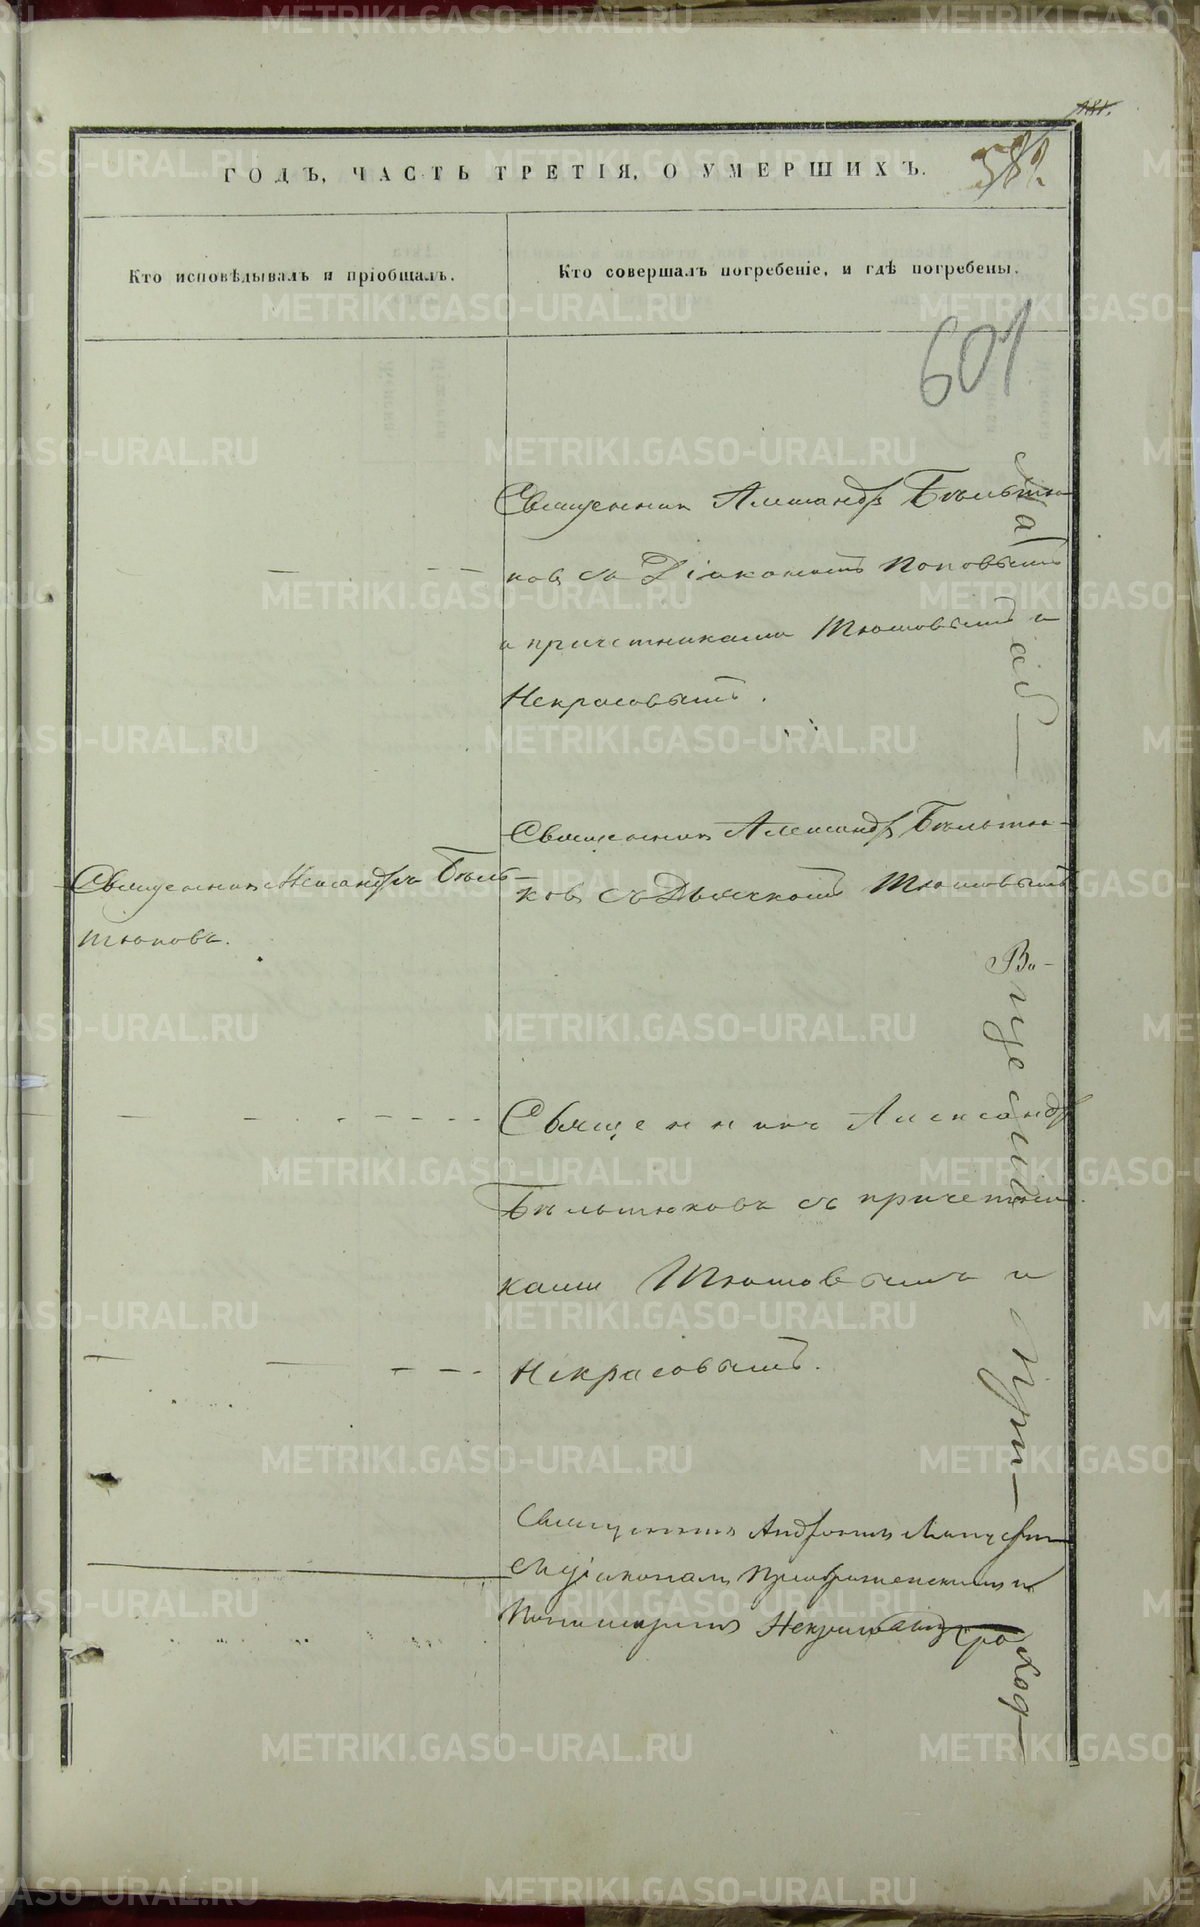 181.
ГОДЪ, ЧАСТЬ ТРЕТІЯ, О УМЕРШИХЪ.
Кто исповѣдывалъ и пріобщалъ.
Кто совершалъ погребеніе, и гдѣ погребены.
601
Священникъ Александръ Бѣльтю-
ковъ съ Діакономъ Поповымъ
и причетниками Тюшовымъ и
Некрасовымъ.
Священникъ Александръ Бѣль-
тюковъ.
Священникъ Александръ Бѣльтю-
ковъ съ Дьячкомъ Тюшовымъ
Священникъ Александръ
Бѣльтюковъ съ причетни-
ками Тюшовымъ и
Некрасовымъ.
Священникъ
съ Діакономъ Преображенскимъ и
Пономаремъ Некрасовымъ
METRIKI.GASO-URAL.RU